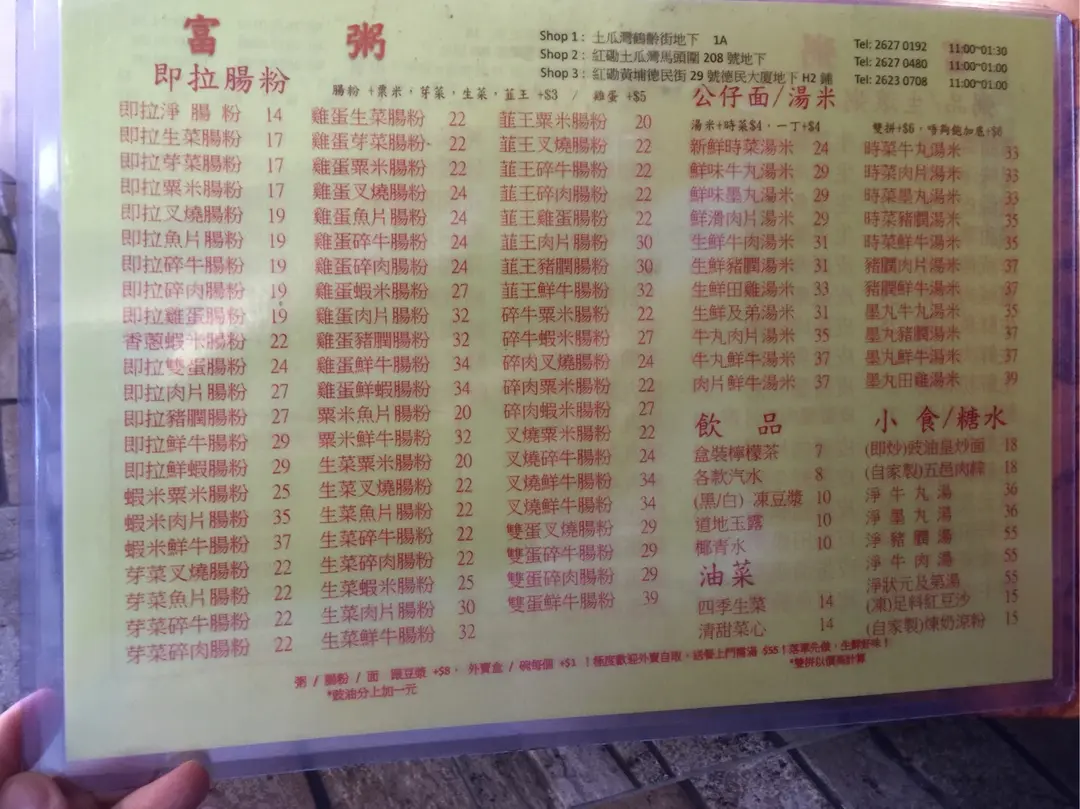 富 粥
Shop 1 : 土瓜灣鶴齡街地下 1A Tel: 2627 0192 11:00~01:30
Shop 2 : 紅磡土瓜灣馬頭圍 208 號地下 Tel: 2627 0480 11:00~01:00
Shop 3 : 紅磡黃埔德民街 29 號德民大廈地下 H2 鋪 Tel: 2623 0708 11:00~01:00
即拉腸粉
腸粉 +粟米，芽菜，生菜，韮王 +$3 / 雞蛋 +$5
即拉淨腸粉 14
即拉生菜腸粉 17
即拉芽菜腸粉 17
即拉粟米腸粉 17
即拉叉燒腸粉 19
即拉魚片腸粉 19
即拉碎牛腸粉 19
即拉碎肉腸粉 19
即拉雞蛋腸粉 19
香蔥蝦米腸粉 22
即拉雙蛋腸粉 24
即拉肉片腸粉 27
即拉豬膶腸粉 27
即拉鮮牛腸粉 29
即拉鮮蝦腸粉 29
蝦米粟米腸粉 25
蝦米肉片腸粉 35
蝦米鮮牛腸粉 37
芽菜叉燒腸粉 22
芽菜魚片腸粉 22
芽菜碎牛腸粉 22
芽菜碎肉腸粉 22
雞蛋生菜腸粉 22
雞蛋芽菜腸粉 22
雞蛋粟米腸粉 22
雞蛋叉燒腸粉 24
雞蛋魚片腸粉 24
雞蛋碎牛腸粉 24
雞蛋碎肉腸粉 24
雞蛋蝦米腸粉 27
雞蛋肉片腸粉 32
雞蛋豬膶腸粉 32
雞蛋鮮牛腸粉 34
雞蛋鮮蝦腸粉 34
粟米魚片腸粉 20
粟米鮮牛腸粉 32
生菜粟米腸粉 20
生菜叉燒腸粉 22
生菜魚片腸粉 22
生菜碎牛腸粉 22
生菜碎肉腸粉 22
生菜蝦米腸粉 25
生菜肉片腸粉 30
生菜鮮牛腸粉 32
韮王粟米腸粉 20
韮王叉燒腸粉 22
韮王碎牛腸粉 22
韮王碎肉腸粉 22
韮王雞蛋腸粉 22
韮王肉片腸粉 30
韮王豬膶腸粉 30
韮王鮮牛腸粉 32
碎牛粟米腸粉 22
碎牛蝦米腸粉 27
碎肉叉燒腸粉 24
碎肉粟米腸粉 22
碎肉蝦米腸粉 27
叉燒粟米腸粉 22
叉燒碎牛腸粉 24
叉燒鮮牛腸粉 34
叉燒鮮牛腸粉 34
雙蛋叉燒腸粉 29
雙蛋碎牛腸粉 29
雙蛋碎肉腸粉 29
雙蛋鮮牛腸粉 39
公仔面/湯米
湯米+時菜$4，一丁+$4 雙拼+$6，唔夠飽加底+$6
新鮮時菜湯米 24
鮮味牛丸湯米 29
鮮味墨丸湯米 29
鮮滑肉片湯米 29
生鮮牛肉湯米 31
生鮮豬膶湯米 31
生鮮田雞湯米 33
生鮮及弟湯米 31
牛丸肉片湯米 35
牛丸鮮牛湯米 37
肉片鮮牛湯米 37
時菜牛丸湯米 33
時菜肉片湯米 33
時菜墨丸湯米 33
時菜豬膶湯米 35
時菜鮮牛湯米 35
豬膶肉片湯米 37
豬膶鮮牛湯米 37
墨丸牛丸湯米 35
墨丸豬膶湯米 37
墨丸鮮牛湯米 37
墨丸田雞湯米 39
飲品
盒裝檸檬茶 7
各款汽水 8
(黑/白) 凍豆漿 10
道地玉露 10
椰青水 10
油菜
四季生菜 14
清甜菜心 14
小食/糖水
(即炒)豉油皇炒面 18
(自家製)五邑肉粽 18
淨牛丸湯 36
淨墨丸湯 36
淨豬膶湯 55
淨牛肉湯 55
淨狀元及第湯 55
(凍)足料紅豆沙 15
(自家製)煉奶涼粉 15
粥 / 腸粉 / 面 跟豆漿 +$8， 外賣盒 / 碗每個 +$1 ！極度歡迎外賣自取，送餐上門需滿 $55！落單先做，生鮮好味！
*豉油分上加一元 *雙拼以價高計算